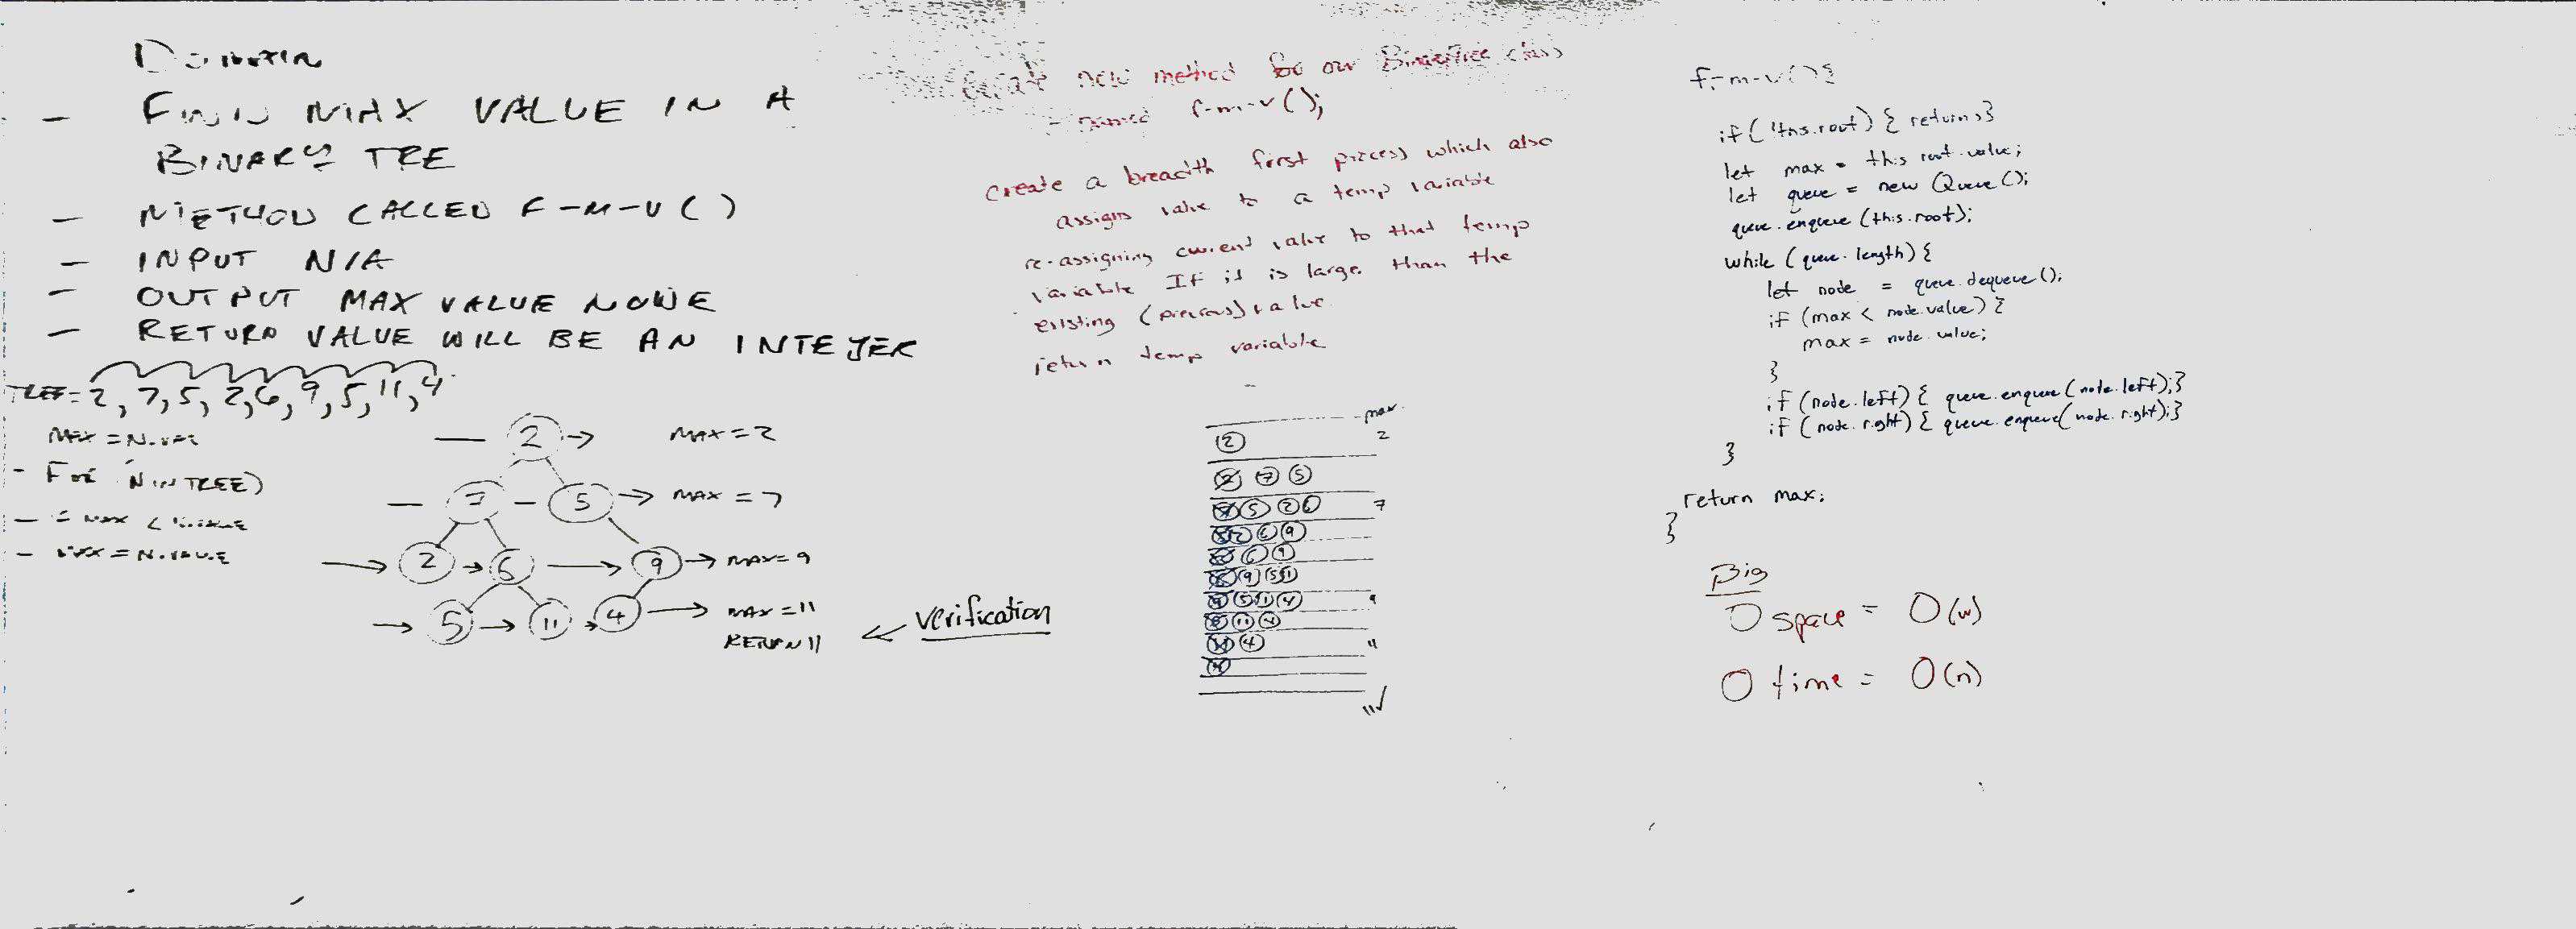 DOMAIN
- FIND MAX VALUE IN A
BINARY TRE
- METHOD CALLED F-M-V()
- INPUT N/A
- OUTPUT MAX VALUE NODE
- RETURN VALUE WILL BE AN INTEGER
TREE = 2, 7, 5, 2, 6, 9, 5, 11, 4
MAX = N.VAL
- FOR N IN TREE)
- MAX <
- MAX = N.VALUE
2 → MAX = 2
7 - 5 → MAX = 7
→ 2 → 6 → 9 → MAX = 9
→ 5 → 11 → 4 → MAX = 11
RETURN 11
← verification
create new method for our BinaryTree class
- named f-m-v();
create a breadth first process which also
assigns value to a temp variable
re-assigning current value to that temp
variable If it is large than the
existing (previous) value
return temp variable
max
2 2
2 7 5
7 5 2 6 7
5 2 6 9
2 6 9
6 9 5 11
9 5 11 4 9
5 11 4
11 4 11
4
11 ✓
f-m-v(){
if(!this.root) { return; }
let max = this.root.value;
let queue = new Queue();
queue.enqueue(this.root);
while (queue.length) {
let node = queue.dequeue();
if (max < node.value) {
max = node.value;
}
if (node.left) { queue.enqueue(node.left); }
if (node.right) { queue.enqueue(node.right); }
}
return max;
}
Big
O space = O(w)
O time = O(n)